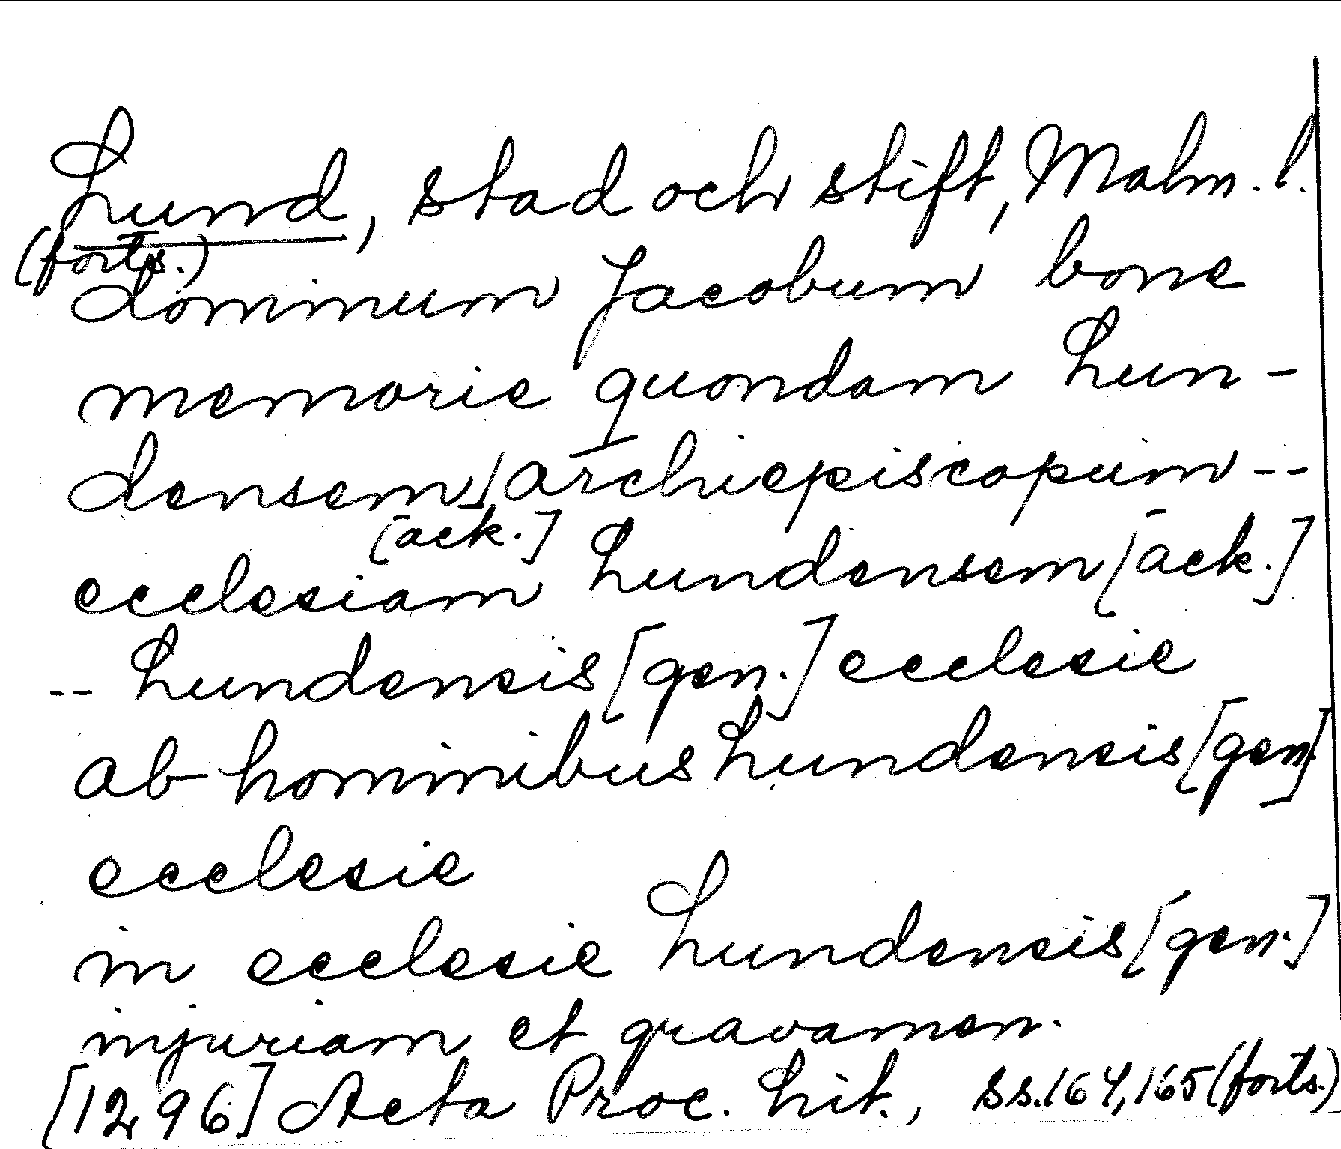 Lund, stad och stift, Malm. l.
(forts.)
dominum Jacobum bone
memorie quondam Lun-
densem/archiepiscopum --
[ack.]
ecclesiam Lundensem [ack.]
-- Lundensis [gen.] ecclesie
ab hominibus Lundensis [gen]
ecclesie
in ecclesie Lundensis [gen.]
injuriam et gravamen.
[1296] Acta Proc. Lit., ss. 164, 165 (forts.)